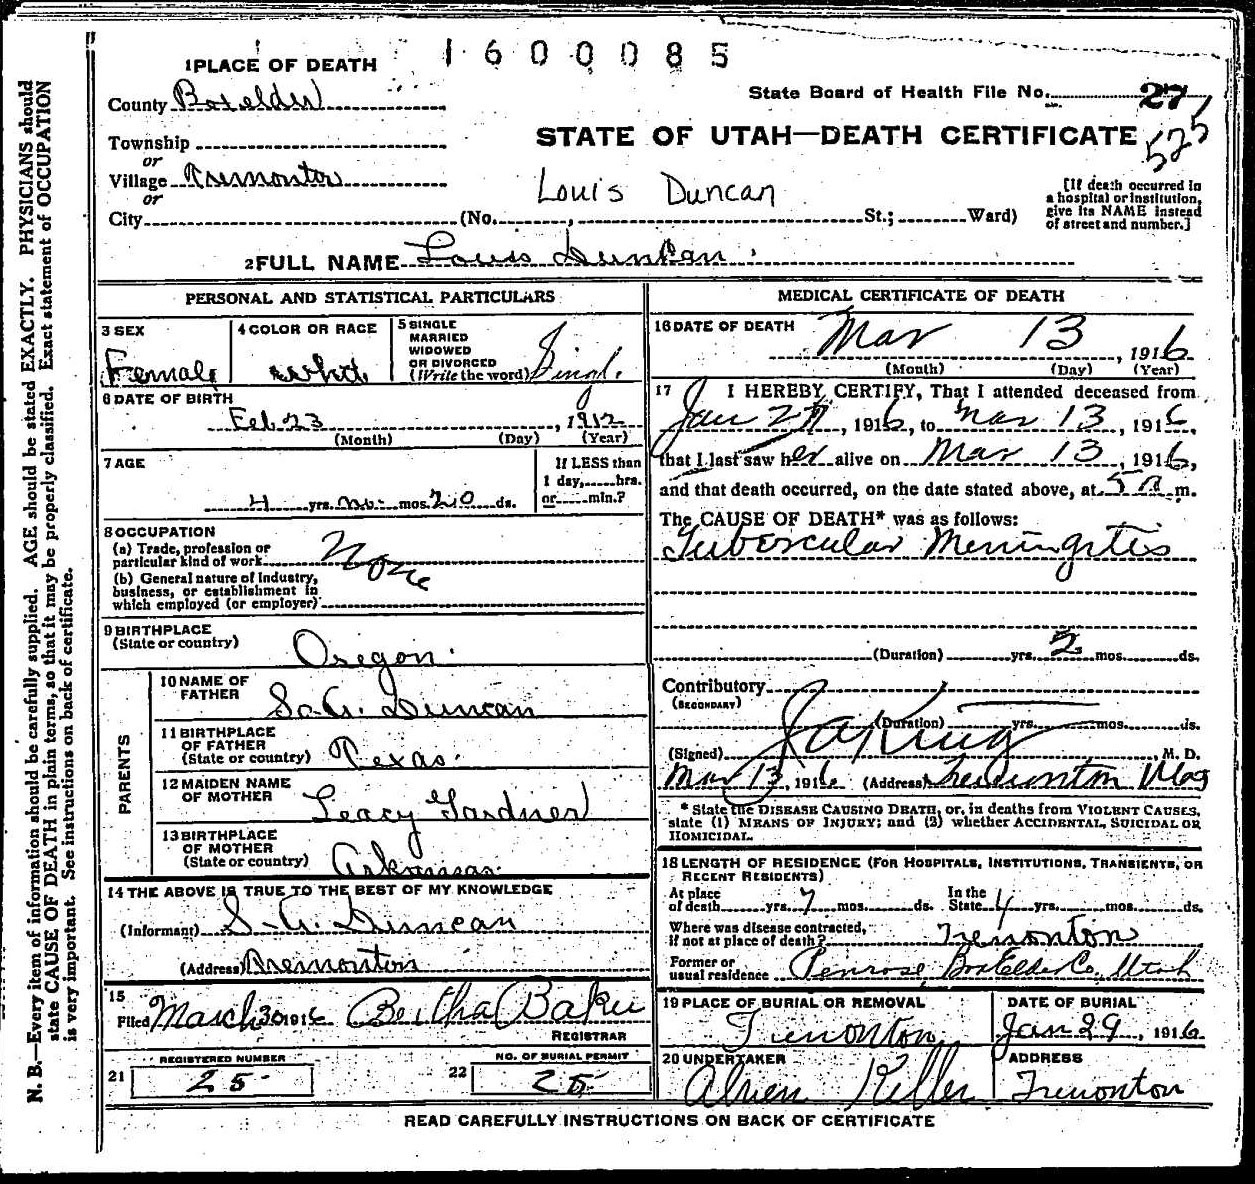 1600085
1 PLACE OF DEATH
County Boxelder
State Board of Health File No. 27
525
STATE OF UTAH—DEATH CERTIFICATE
Township
or
Village Tremonton
or
Louis Duncan
City (No. , St.; Ward)
[If death occurred in a hospital or institution, give its NAME instead of street and number.]
2 FULL NAME Louis Duncan
PERSONAL AND STATISTICAL PARTICULARS
3 SEX Female
4 COLOR OR RACE White
5 SINGLE MARRIED WIDOWED OR DIVORCED (Write the word) Singl.
6 DATE OF BIRTH
Feb 23, 1912
(Month) (Day) (Year)
7 AGE
4 yrs. mos. 20 ds.
If LESS than
1 day, hrs.
or min.?
8 OCCUPATION
(a) Trade, profession or
particular kind of work None
(b) General nature of industry,
business, or establishment in
which employed (or employer)
9 BIRTHPLACE
(State or country) Oregon
PARENTS
10 NAME OF
FATHER S. A. Duncan
11 BIRTHPLACE
OF FATHER
(State or country) Texas.
12 MAIDEN NAME
OF MOTHER Leacy Gardner
13 BIRTHPLACE
OF MOTHER
(State or country) Arkansas.
14 THE ABOVE IS TRUE TO THE BEST OF MY KNOWLEDGE
(Informant) S. A. Duncan
(Address) Tremonton
15
Filed March 30 1916 Bertha Baker
REGISTRAR
REGISTERED NUMBER
21 25
NO. OF BURIAL PERMIT
22 25
MEDICAL CERTIFICATE OF DEATH
16 DATE OF DEATH
Mar 13, 1916
(Month) (Day) (Year)
17 I HEREBY CERTIFY, That I attended deceased from
Jan 27, 1916, to Mar 13, 1916,
that I last saw her alive on Mar 13, 1916,
and that death occurred, on the date stated above, at 5 a m.
The CAUSE OF DEATH* was as follows:
Tubercular Meningitis
(Duration) yrs. 2 mos. ds.
Contributory
(SECONDARY)
(Duration) yrs. mos. ds.
(Signed) King M. D.
Mar 13, 1916 (Address) Tremonton
* State the DISEASE CAUSING DEATH, or, in deaths from VIOLENT CAUSES,
state (1) MEANS OF INJURY; and (2) whether ACCIDENTAL, SUICIDAL OR
HOMICIDAL.
18 LENGTH OF RESIDENCE (FOR HOSPITALS, INSTITUTIONS, TRANSIENTS, OR
RECENT RESIDENTS)
At place In the
of death yrs. 7 mos. ds. State 4 yrs. mos. ds.
Where was disease contracted,
if not at place of death? Tremonton
Former or
usual residence Penrose BoxElder Co, Utah
19 PLACE OF BURIAL OR REMOVAL
Tremonton
DATE OF BURIAL
Jan 29, 1916
20 UNDERTAKER
Keller
ADDRESS
Tremonton
READ CAREFULLY INSTRUCTIONS ON BACK OF CERTIFICATE
N. B.—Every item of information should be carefully supplied. AGE should be stated EXACTLY. PHYSICIANS should
state CAUSE OF DEATH in plain terms, so that it may be properly classified. Exact statement of OCCUPATION
is very important. See instructions on back of certificate.